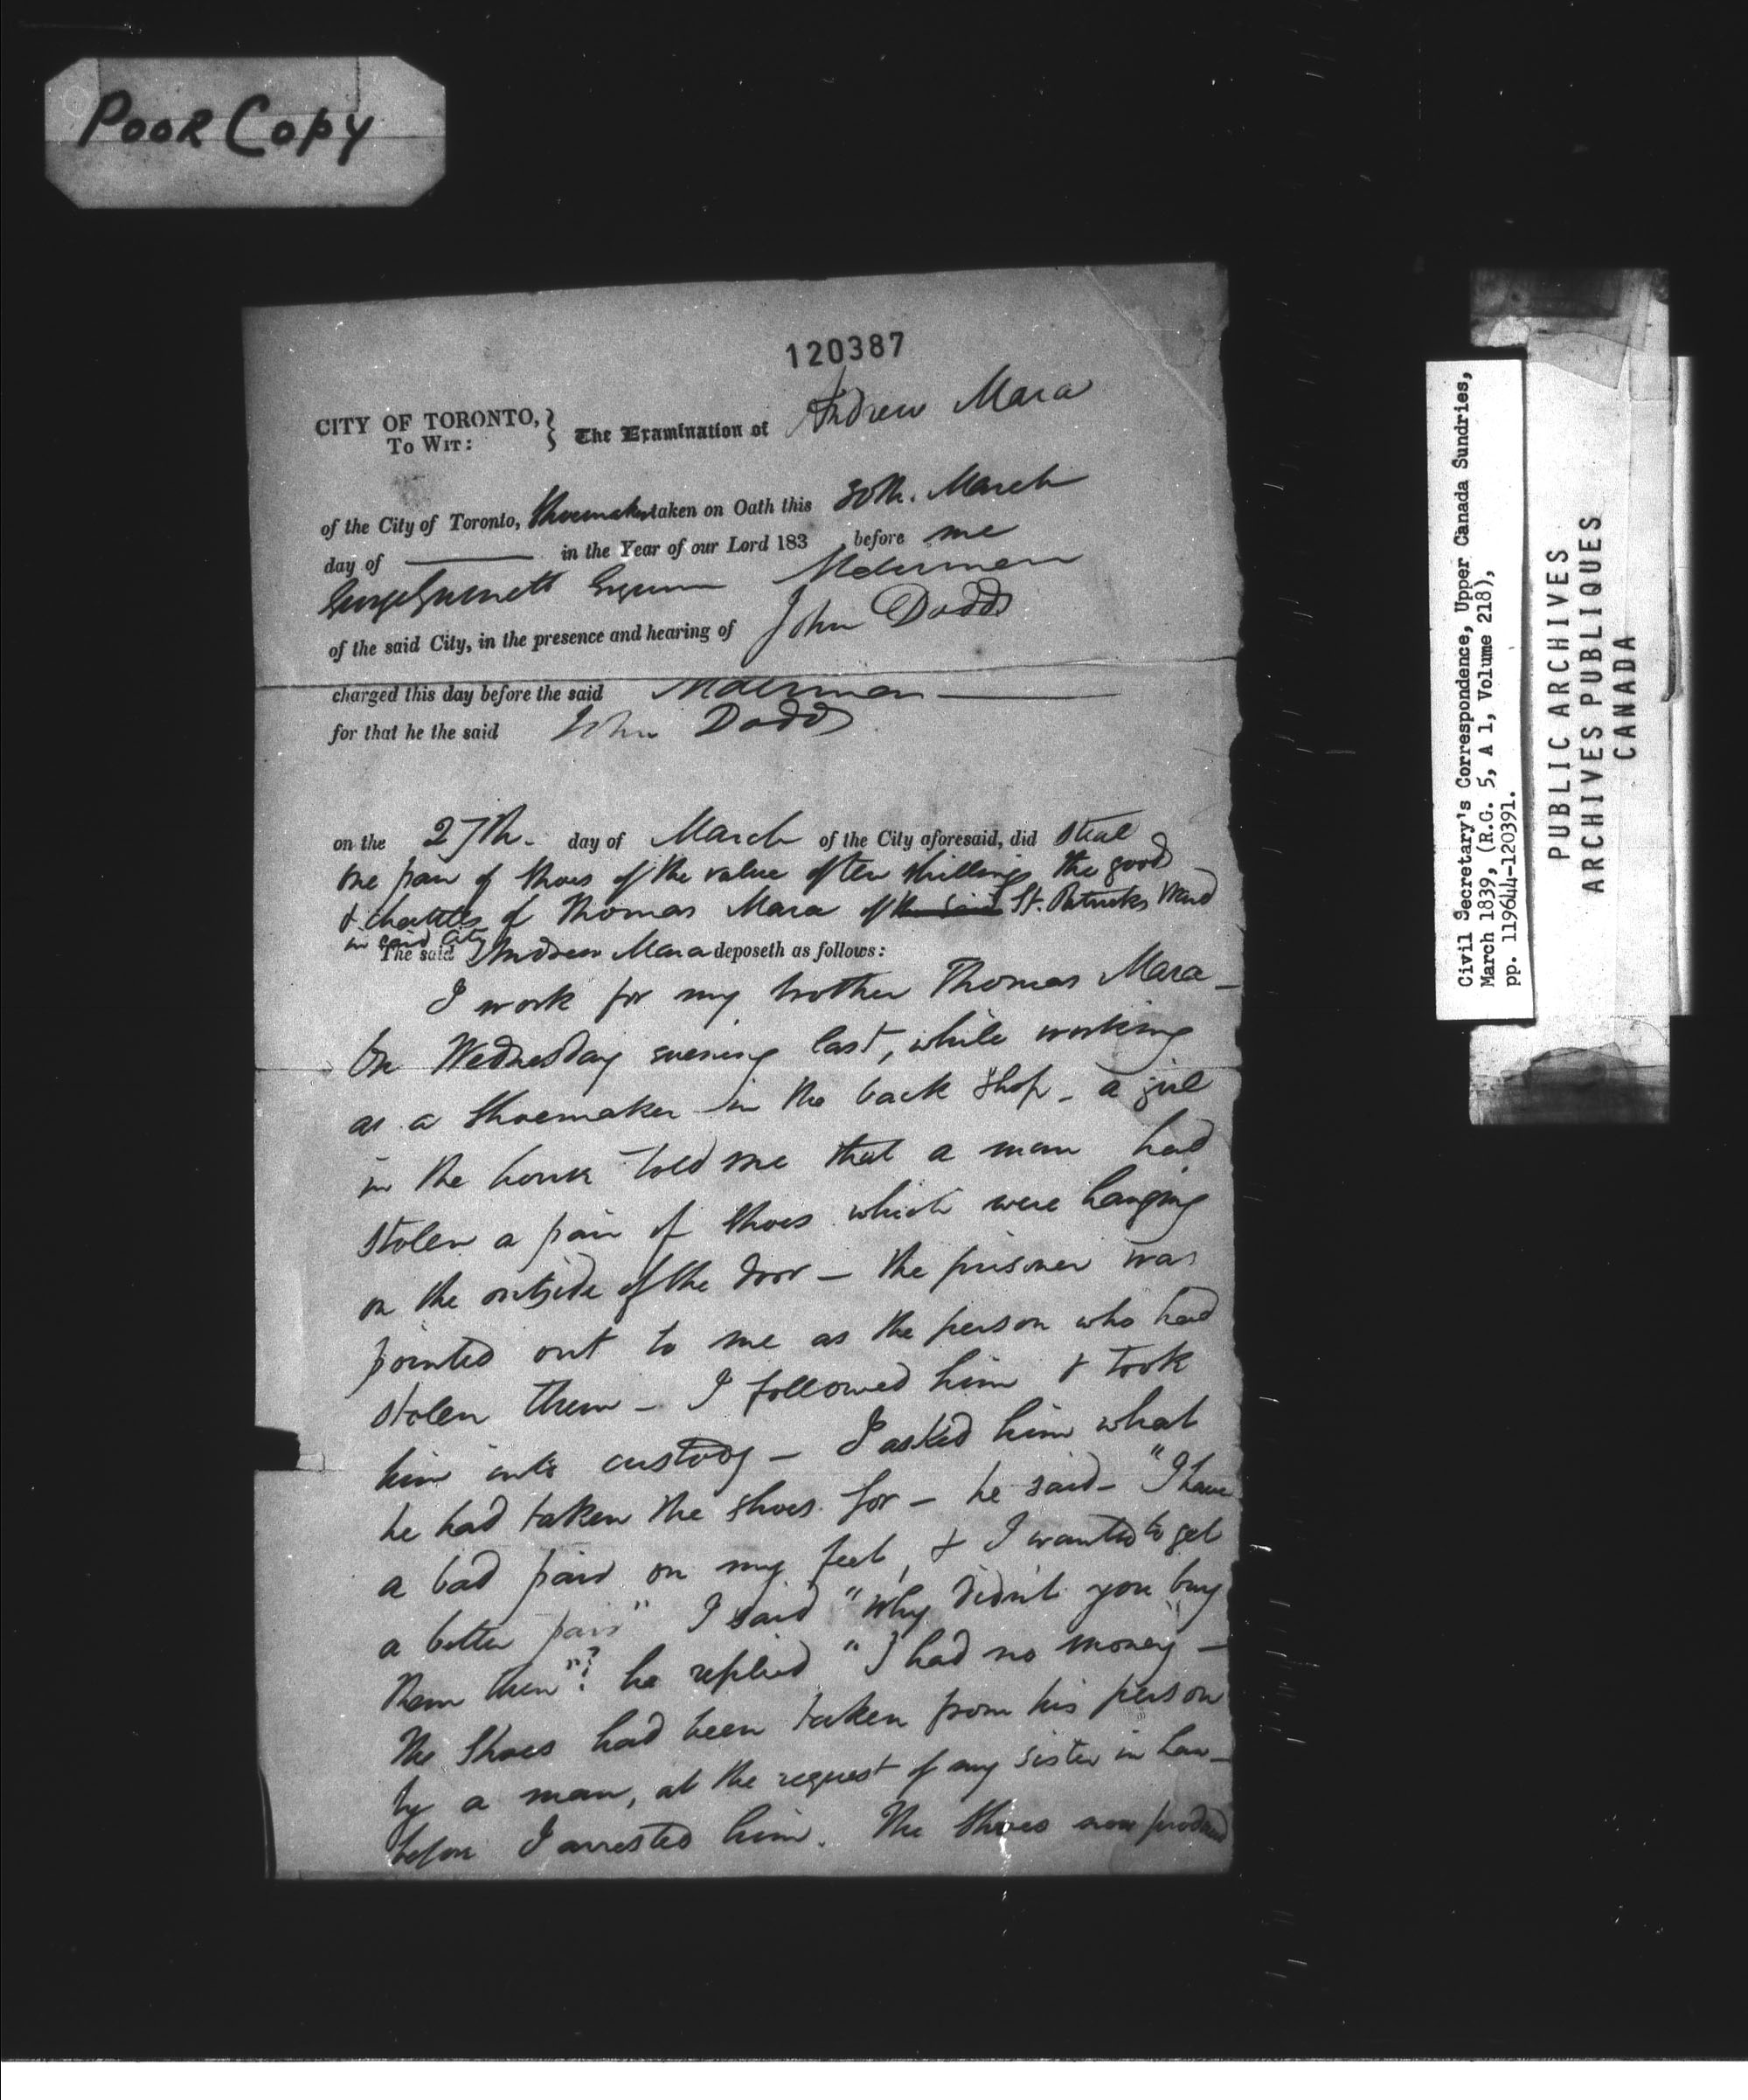 POOR COPY
120387
CITY OF TORONTO, } The Examination of Andrew Mara
TO WIT:
of the City of Toronto, Shoemaker taken on Oath this 30th. March
day of in the Year of our Lord 183 before me
George Gurnett Esquire Alderman
of the said City, in the presence and hearing of John Dodds
charged this day before the said Alderman
for that he the said John Dodds
on the 27th. day of March of the City aforesaid, did steal
one pair of shoes of the value of ten shillings the good
& chattles of Thomas Mara of the said St. Patricks Ward
in said City
The said Andrew Mara deposeth as follows:
I work for my brother Thomas Mara –
On Wednesday evening last, while working
as a shoemaker in the back shop – a girl
in the house told me that a man had
stolen a pair of shoes which were hanging
on the outside of the door – the prisoner was
pointed out to me as the person who had
stolen them – I followed him & took
him into custody – I asked him what
he had taken the shoes for – he said – "I have
a bad pair on my feet, & I wanted to get
a better pair" I said "why didn't you buy
them then"? he replied "I had no money –
The shoes had been taken from his person
by a man, at the request of my sister in law –
before I arrested him. The shoes now produced
Civil Secretary's Correspondence, Upper Canada Sundries,
March 1839, (R.G. 5, A 1, Volume 218),
pp. 119644-120391.
PUBLIC ARCHIVES
ARCHIVES PUBLIQUES
CANADA